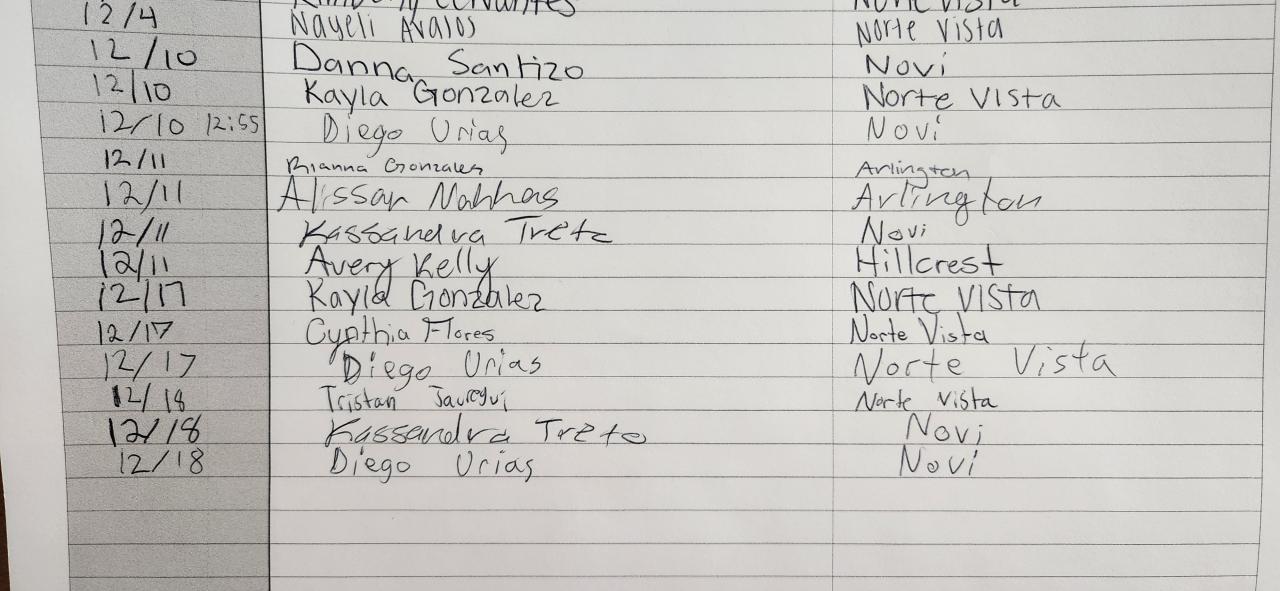 Cervantes Norte Vista
12/4 Nayeli Avalos Norte Vista
12/10 Danna Santizo Novi
12/10 Kayla Gonzalez Norte Vista
12/10 12:55 Diego Urias Novi
12/11 Brianna Gonzales Arlington
12/11 Alissar Nahhas Arlington
12/11 Kassandra Treto Novi
12/11 Avery Kelly Hillcrest
12/17 Kayla Gonzalez Norte Vista
12/17 Cynthia Flores Norte Vista
12/17 Diego Urias Norte Vista
12/18 Tristan Jauregui Norte Vista
12/18 Kassandra Treto Novi
12/18 Diego Urias Novi